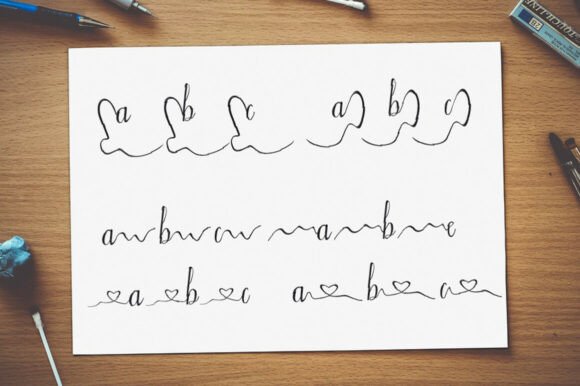 a b c a b c
a b c a b c
a b c a b c